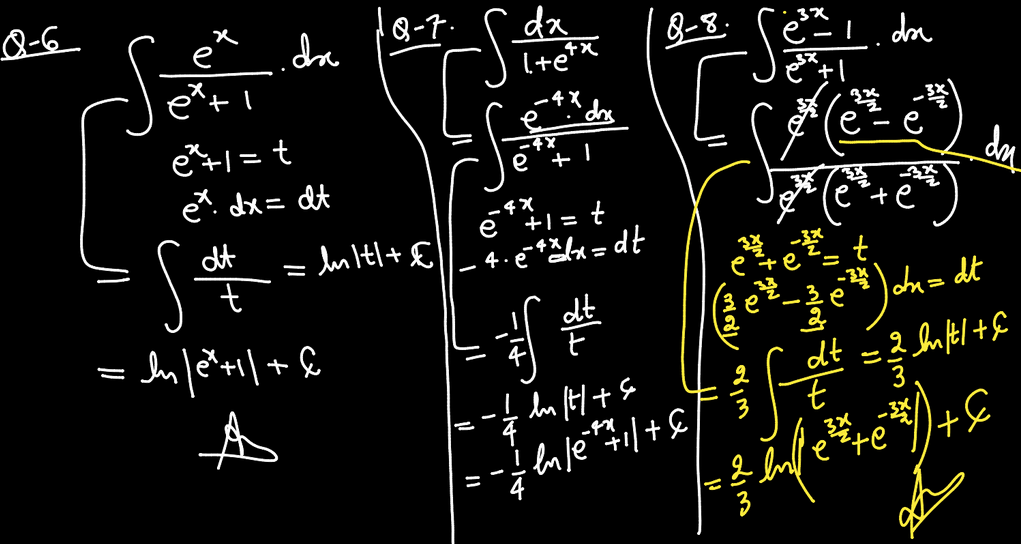 Q-6
∫ e^x / (e^x + 1) . dx
e^x + 1 = t
e^x . dx = dt
∫ dt / t = ln|t| + C
= ln|e^x + 1| + C
Q-7.
∫ dx / (1 + e^{4x})
= ∫ e^{-4x} . dx / (e^{-4x} + 1)
e^{-4x} + 1 = t
- 4 . e^{-4x} dx = dt
= -1/4 ∫ dt / t
= -1/4 ln|t| + C
= -1/4 ln|e^{-4x} + 1| + C
Q-8.
∫ (e^{3x} - 1) / (e^{3x} + 1) . dx
= ∫ e^{3x/2} (e^{3x/2} - e^{-3x/2}) / e^{3x/2} (e^{3x/2} + e^{-3x/2}) . dx
e^{3x/2} + e^{-3x/2} = t
(3/2 e^{3x/2} - 3/2 e^{-3x/2}) dx = dt
= 2/3 ∫ dt / t = 2/3 ln|t| + C
= 2/3 ln(|e^{3x/2} + e^{-3x/2}|) + C